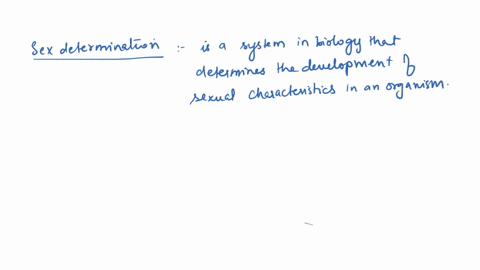 Sex determination :- is a system in biology that
determines the development of
sexual characteristics in an organism.